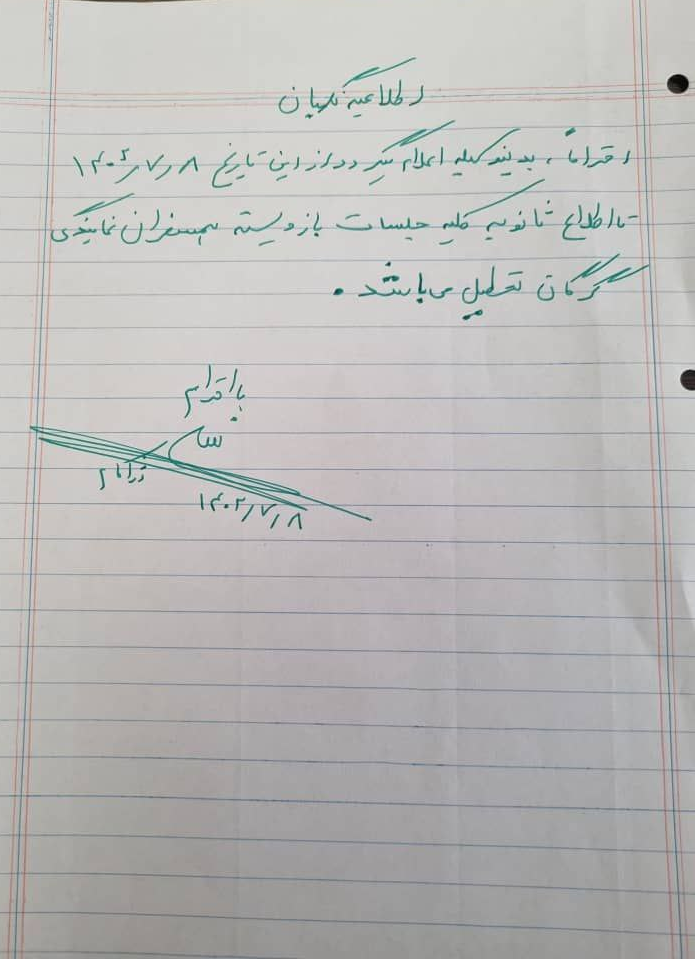 اطلاعیه نگهبان
احتراماً، بدینوسیله اعلام میگردد از این تاریخ ۱۴۰۲/۷/۸
تا اطلاع ثانویه کلیه جلسات باز و بسته همسفران نمایندگی
گرگان تعطیل می باشد.
با احترام
۱۴۰۲/۷/۸